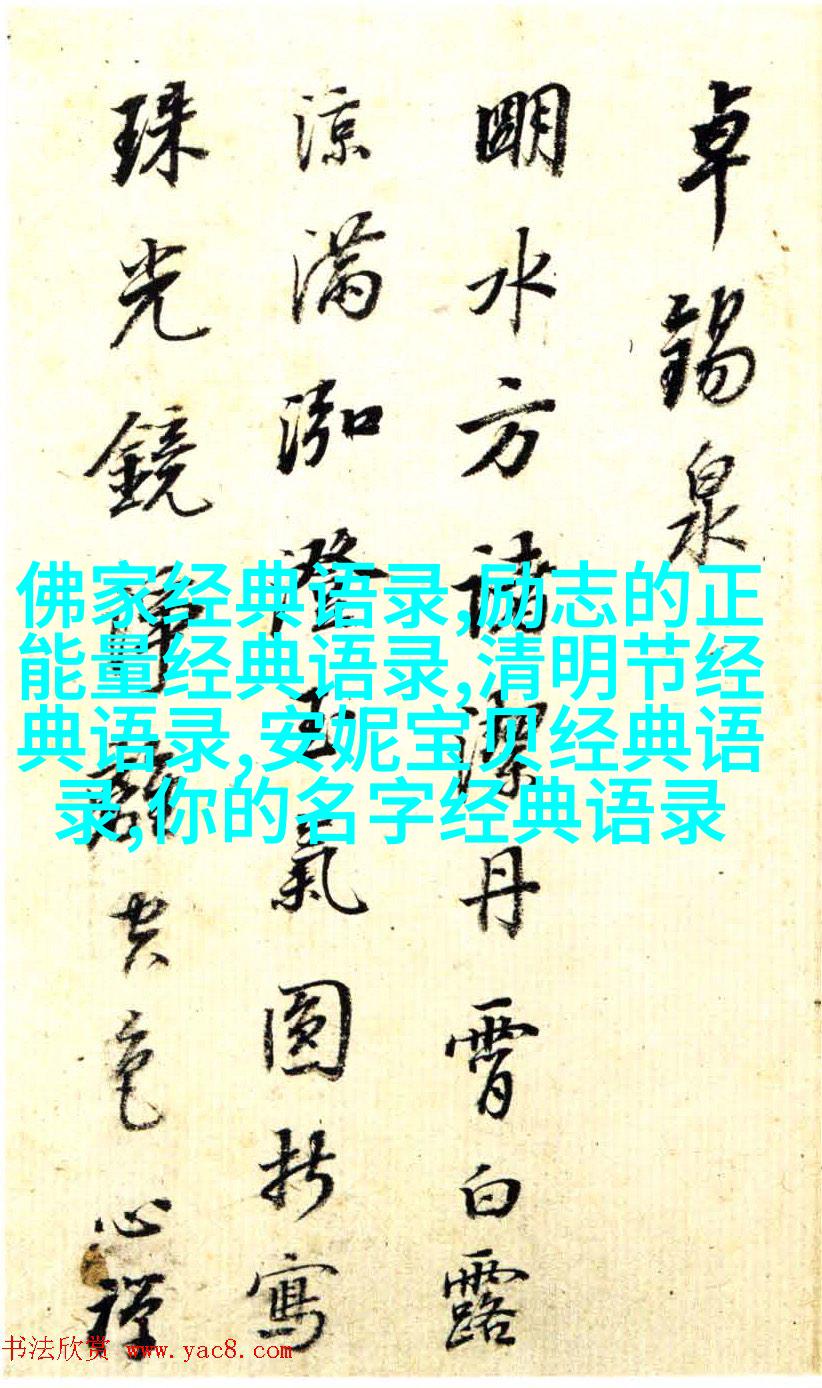 卓錫泉
朙水方諸潔丹霄白露
涼滿泓澄玉氣圓折寫
珠光鏡空色心禪
佛家经典语录,励志的正
能量经典语录,清明节经
典语录,安妮宝贝经典语
录,你的名字经典语录
书法欣赏 www.yac8.com